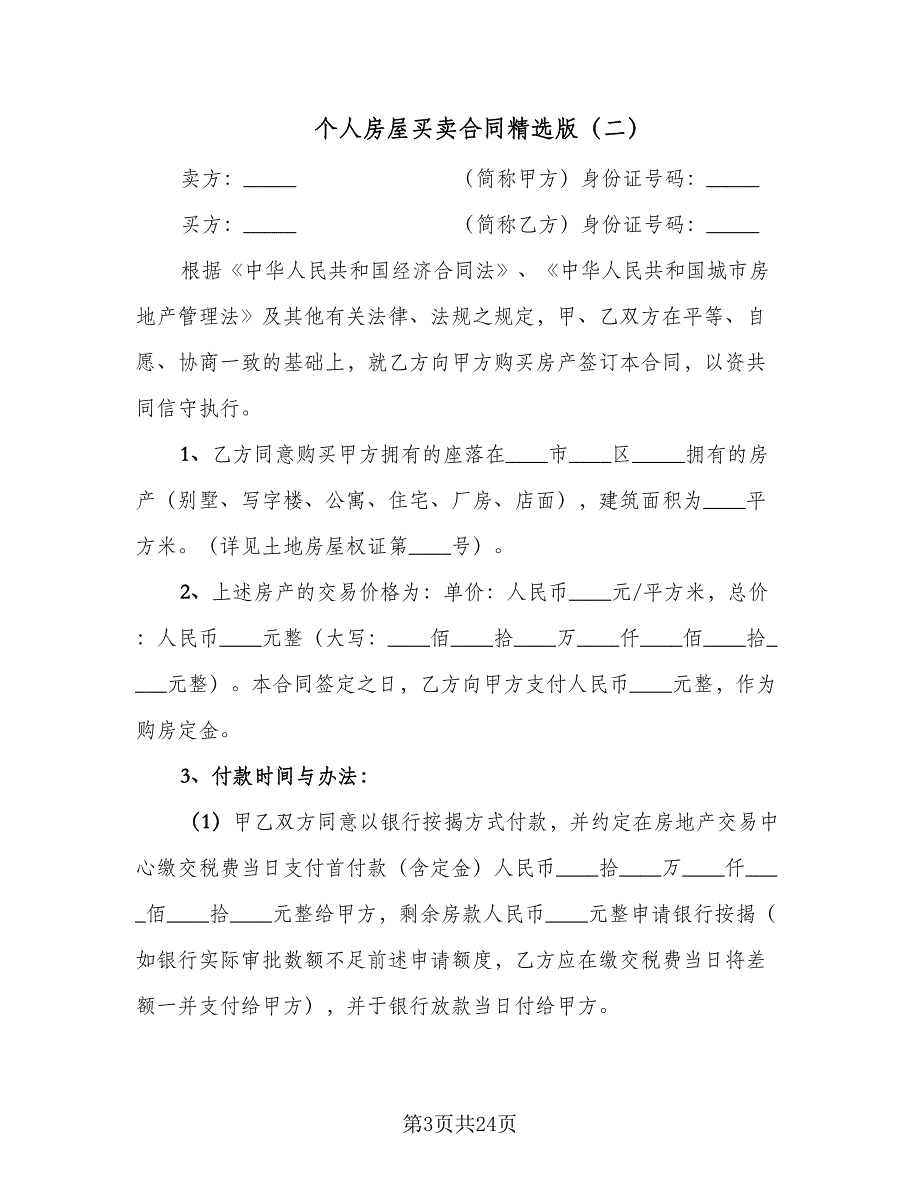 个人房屋买卖合同精选版（二）
卖方：_____ （简称甲方）身份证号码：_____
买方：_____ （简称乙方）身份证号码：_____
根据《中华人民共和国经济合同法》、《中华人民共和国城市房
地产管理法》及其他有关法律、法规之规定，甲、乙双方在平等、自
愿、协商一致的基础上，就乙方向甲方购买房产签订本合同，以资共
同信守执行。
1、乙方同意购买甲方拥有的座落在____市____区_____拥有的房
产（别墅、写字楼、公寓、住宅、厂房、店面），建筑面积为____平
方米。（详见土地房屋权证第____号）。
2、上述房产的交易价格为：单价：人民币____元/平方米，总价
：人民币____元整（大写：____佰____拾____万____仟____佰____拾_
___元整）。本合同签定之日，乙方向甲方支付人民币____元整，作为
购房定金。
3、付款时间与办法：
（1）甲乙双方同意以银行按揭方式付款，并约定在房地产交易中
心缴交税费当日支付首付款（含定金）人民币____拾____万____仟___
_佰____拾____元整给甲方，剩余房款人民币____元整申请银行按揭（
如银行实际审批数额不足前述申请额度，乙方应在缴交税费当日将差
额一并支付给甲方），并于银行放款当日付给甲方。
第3页共24页